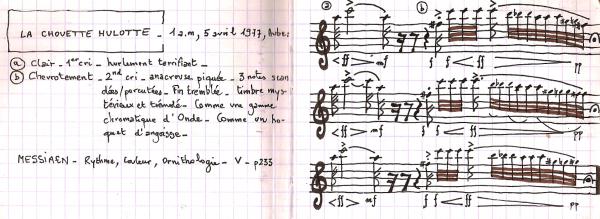 LA CHOUETTE HULOTTE - 1 a.m, 5 avril 1977, Aube.
a Clair - 1er cri - hurlement terrifiant -
b Chevrotement - 2nd cri - anacrouse piquée - 3 notes scan
dées/percutées - Fin tremblée - timbre mys
térieux et trémolé - Comme une gamme
chromatique d'Onde - Comme un ho-
quet d'angoisse -
MESSIAEN - Rythme, Couleur, Ornithologie - V - p233
a b
ff mf f f ff pp
ff mf f f ff pp
ff mf f f ff pp